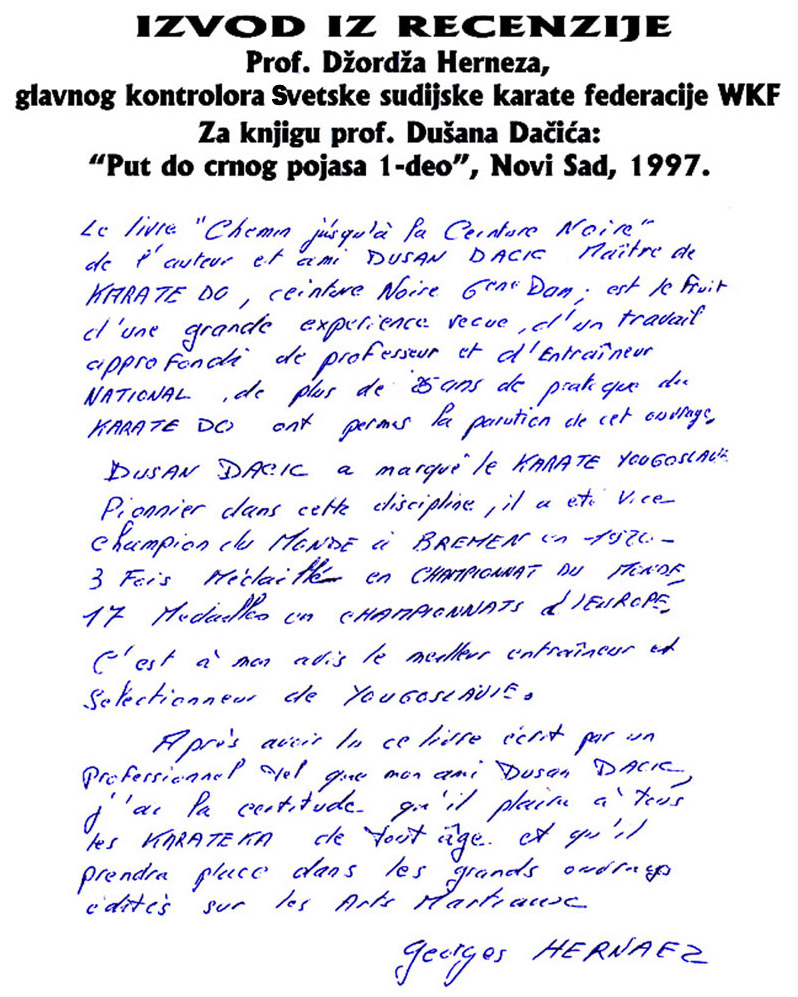 IZVOD IZ RECENZIJE
Prof. Džordža Herneza,
glavnog kontrolora Svetske sudijske karate federacije WKF
Za knjigu prof. Dušana Dačića:
“Put do crnog pojasa 1-deo”, Novi Sad, 1997.
Le livre "Chemin jusqu'à la Ceinture Noire"
de l'auteur et ami DUSAN DACIC Maître de
KARATE DO, ceinture Noire 6eme Dan; est le fruit
d'une grande experience vecue, d'un travail
approfondi de professeur et d'Entraîneur
NATIONAL, de plus de 25 ans de pratique du
KARATE DO ont permis la parution de cet ouvrage,
DUSAN DACIC a marqué le KARATE YOUGOSLAVE
Pionnier dans cette discipline, il a eté Vice
champion du MONDE à BREMEN en
3 Fois Médaillé en CHAMPIONNAT DU MONDE,
17 Medailles en CHAMPIONNATS d'EUROPE,
C'est à mon avis le meilleur entraîneur et
Selectionneur de YOUGOSLAVIE.
Après avoir lu ce livre écrit par un
Professionnel tel que mon ami DUSAN DACIC,
j'ai la certitude qu'il plaira à tous
les KARATEKA de tout âge et qu'il
prendra place dans les grands ouvrages
édités sur les Arts Martiaux
Georges HERNAEZ